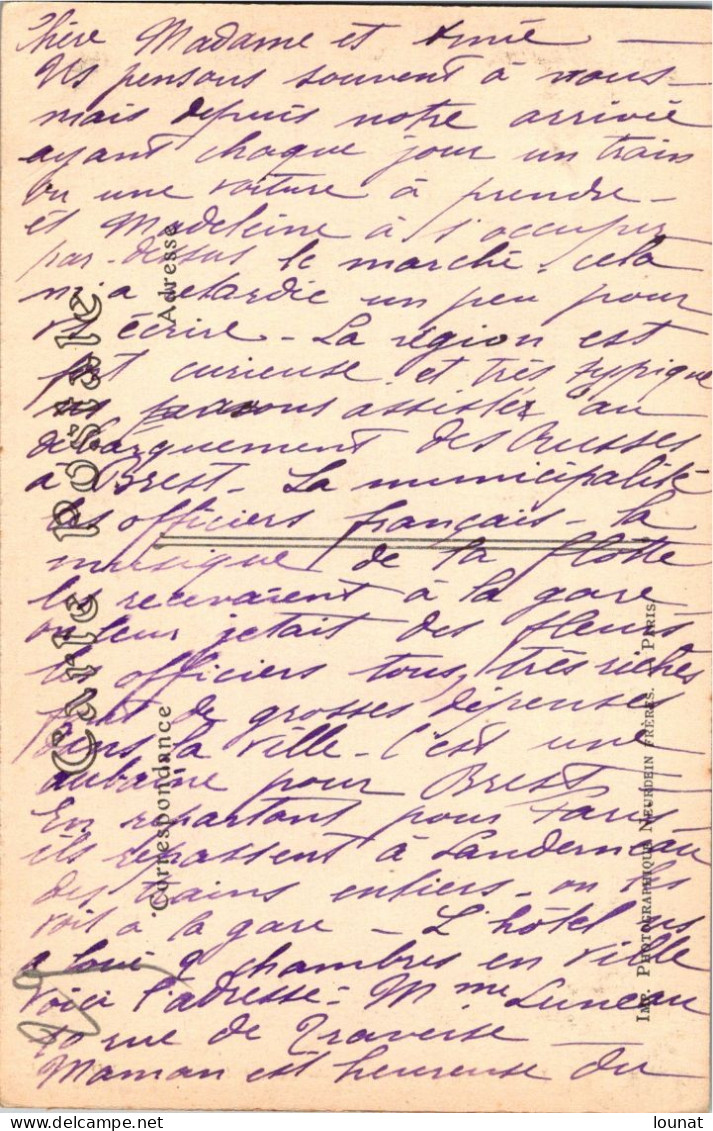 Chère Madame et Amie —
Ns pensons souvent à vous -
mais depuis notre arrivée
ayant chaque jour un train
ou une voiture à prendre -
et Madeleine à s'occuper
par-dessus le marché, cela
m'a retardée un peu pour
vs écrire - La région est
fort curieuse et très typique
ns pouvons assister au
débarquement des Russes
à Brest - La municipalité
les officiers français - la
musique de la flotte
les recevaient à la gare
on leur jetait des fleurs
les officiers tous très riches
font de grosses dépenses
dans la ville - C'est une
aubaine pour Brest
En repartant pour Paris
ils repassent à Landerneau
des trains entiers - on les
voit à la gare - L'hôtel ns
a loué 2 chambres en ville
Voici l'adresse - Mme Luneau
10 rue de Traverse —
Maman est heureuse du
Carte Postale
Correspondance
Adresse
Imp. Photographique Neurdein Frères. - Paris